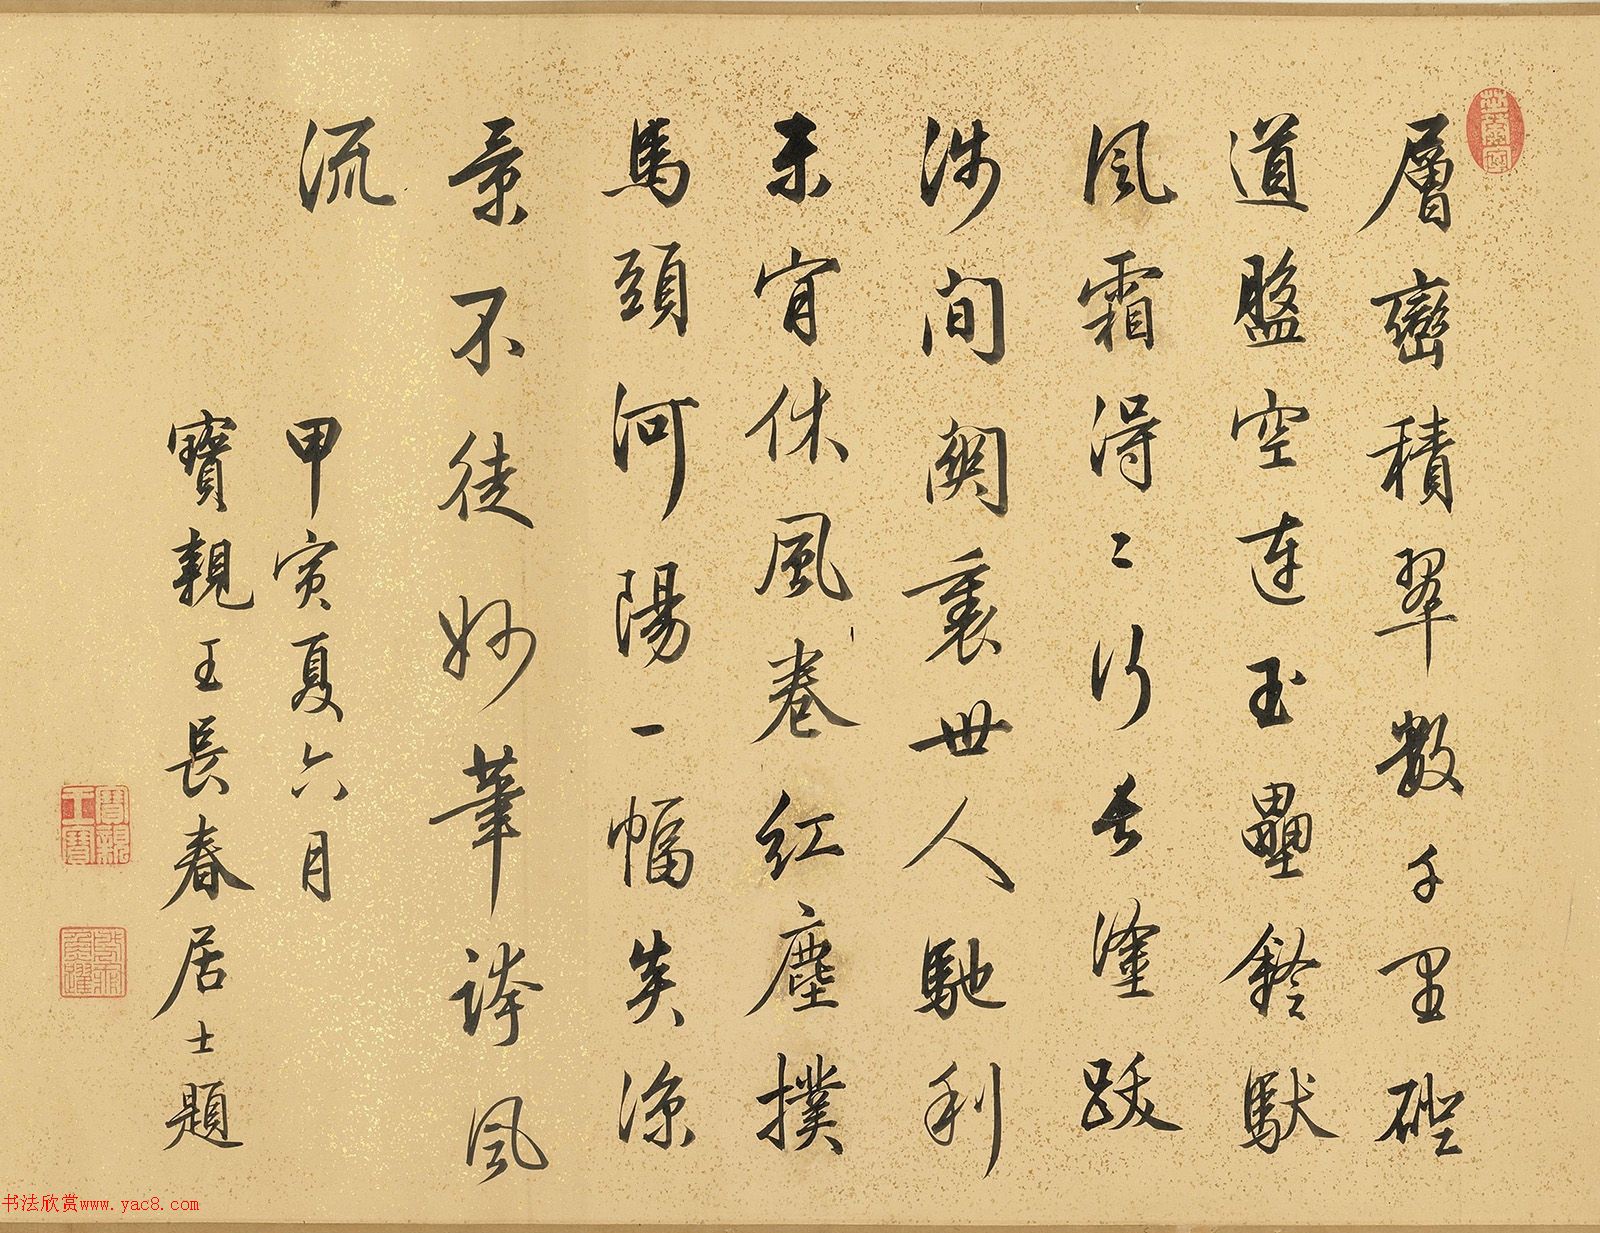 層巒積翠數千里磴
道盤空連玉壘鈴馱
風霜得〻行長塗跋
涉間關裏世人馳利
未肯休風卷紅塵撲
馬頭河陽一幅炎涼
景不徒妙筆誇風
流
甲寅夏六月
寶親王長春居士題
寶親王寶
书法欣赏www.yac8.com